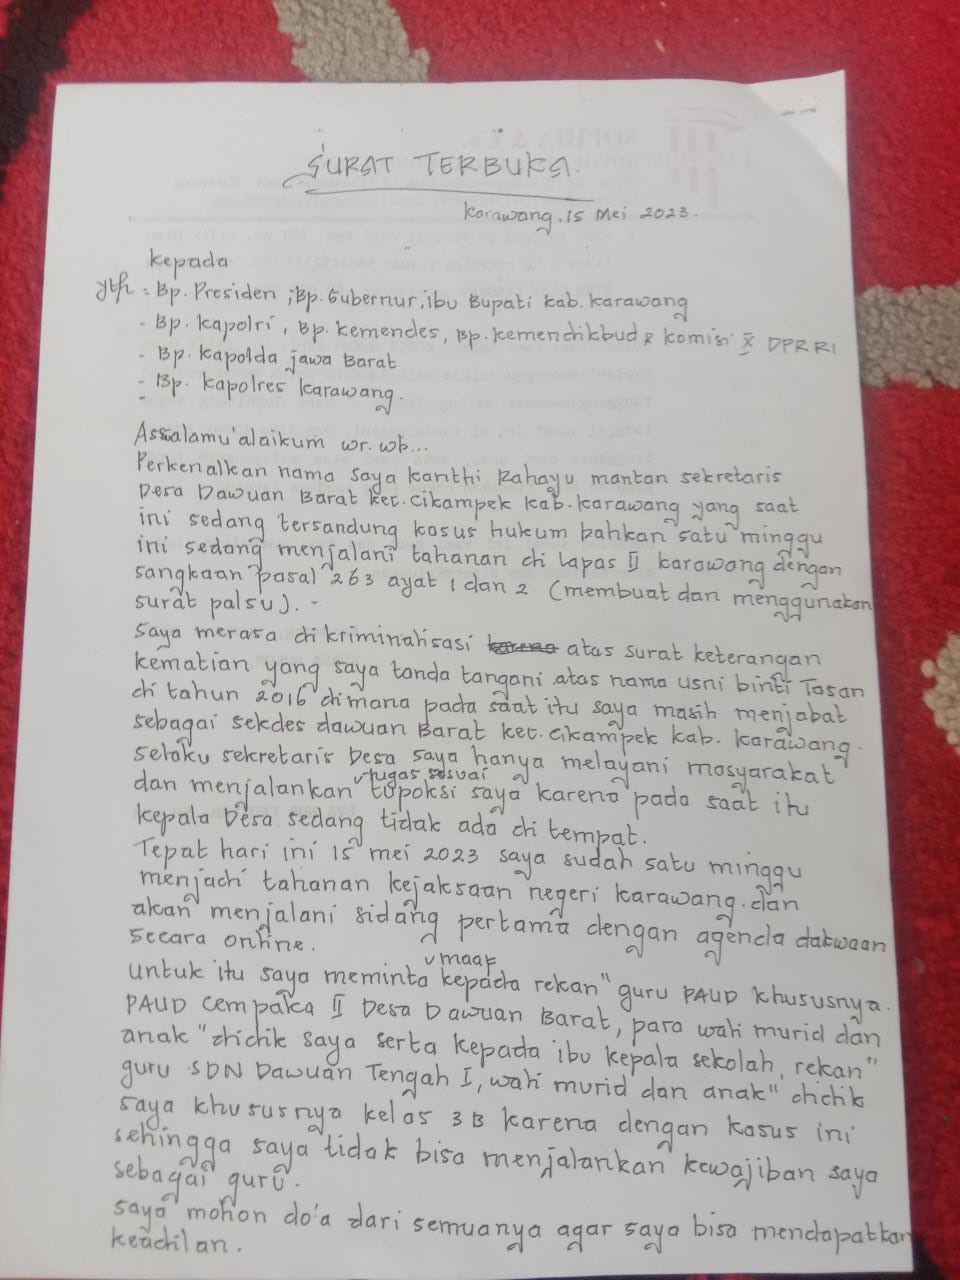 SURAT TERBUKA.
Karawang, 15 Mei 2023.
kepada
yth = Bp. Presiden ; Bp. Gubernur, ibu Bupati kab. karawang
- Bp. kapolri, Bp. kemendes, Bp. kemendikbud & komisi X DPR RI
- Bp. kapolda jawa Barat
- Bp. kapolres karawang.
Assalamu'alaikum wr. wb...
Perkenalkan nama saya kanthi Rahayu mantan sekretaris
Desa Dawuan Barat kec. cikampek kab. karawang yang saat
ini sedang tersandung kasus hukum bahkan satu minggu
ini sedang menjalani tahanan di lapas II karawang dengan
sangkaan pasal 263 ayat 1 dan 2 (membuat dan menggunakan
surat palsu). -
saya merasa di kriminalisasi karena atas surat keterangan
kematian yang saya tanda tangani atas nama usni binti Tasan
di tahun 2016 dimana pada saat itu saya masih menjabat
sebagai sekdes dawuan Barat kec. cikampek kab. karawang.
selaku sekretaris Desa saya hanya melayani masyarakat
dan menjalankan tugas sesuai tupoksi saya karena pada saat itu
kepala Desa sedang tidak ada di tempat.
Tepat hari ini 15 mei 2023 saya sudah satu minggu
menjadi tahanan kejaksaan negeri karawang. dan
akan menjalani sidang pertama dengan agenda dakwaan
secara online.
untuk itu saya meminta maaf kepada rekan" guru PAUD khususnya.
PAUD cempaka II Desa Dawuan Barat, para wali murid dan
anak" didik saya serta kepada ibu kepala sekolah, rekan"
guru SDN Dawuan Tengah I, wali murid dan anak" didik
saya khususnya kelas 3B karena dengan kasus ini
sehingga saya tidak bisa menjalankan kewajiban saya
sebagai guru.
saya mohon do'a dari semuanya agar saya bisa mendapatkan
keadilan.